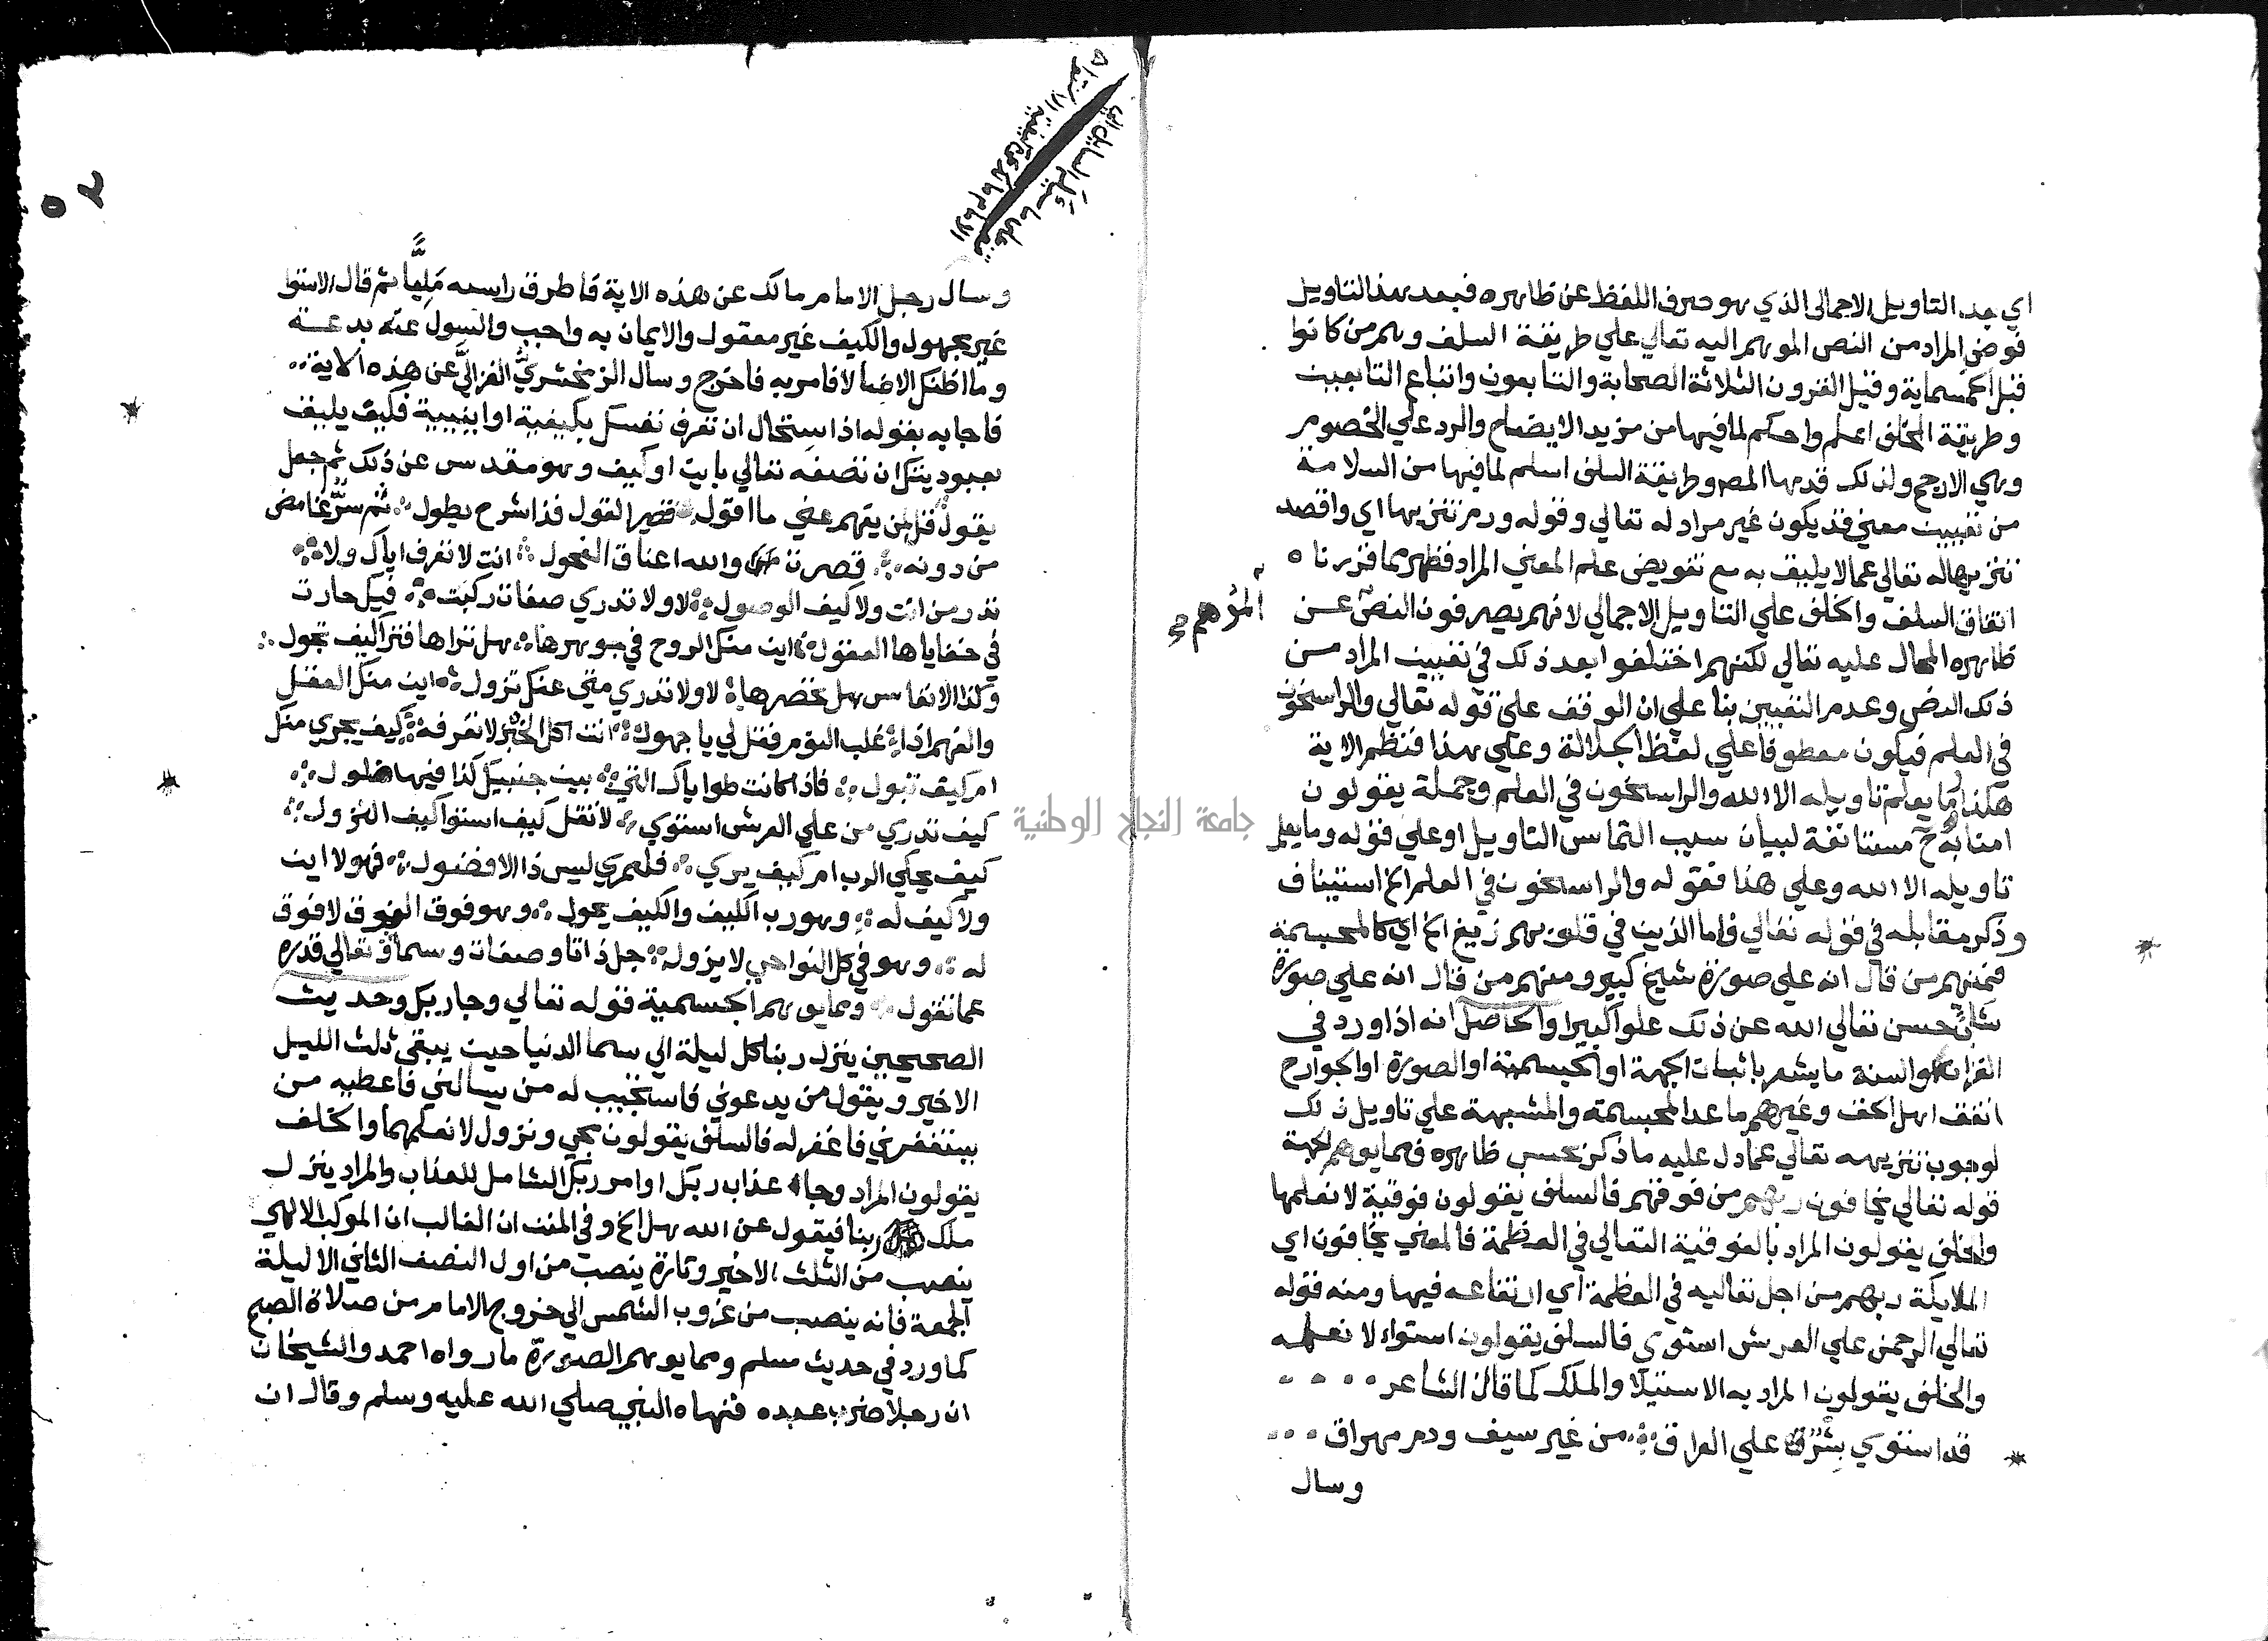 اي بعد التاويل الاجمالي الذي هو صرف اللفظ عن ظاهره فبعد هذا التاويل
فوض المراد من النص الموهم اليه تعالي علي طريقة السلف وهم من كانوا
قبل الخمسماية وقيل القرون الثلاثة الصحابة والتابعون واتباع التابعين
وطريقة الخلف اعلم واحكم لما فيها من مزيد الايضاح والرد علي الخصوم
وهي الارجح ولذلك قدمها المص وطريقة السلف اسلم لما فيها من السلامة
من تعيين معني قد يكون غير مراد له تعالي وقوله ورم تنزيها اي واقصد
تنزيها له تعالي عما لا يليق به مع تفويض علم المعني المراد فظهر مما قررناه
اتفاق السلف والخلف علي التاويل الاجمالي لانهم يصرفون النص عن
الموهم صح
ظاهره المحال عليه تعالي لكنهم اختلفوا بعد ذلك في تعيين المراد من
ذلك النص وعدم التعيين بنا علي ان الوقف علي قوله تعالي والراسخون
في العلم فيكون معطوفا علي لفظ الجلالة وعلي هذا فنظم الاية
هكذا وما يعلم تاويله الا الله والراسخون في العلم وجملة يقولون
امنا به ح مستانفة لبيان سبب التماس التاويل او علي قوله وما يعلم
تاويله الا الله وعلي هذا فقوله والراسخون في العلم الخ استيناف
وذكر مقابله في قوله تعالي فاما الذين في قلوبهم زيغ الخ اي كالمجسمة
فمنهم من قال انه علي صورة شيخ كبير ومنهم من قال انه علي صورة
شاب حسن تعالي الله عن ذلك علوا كبيرا والحاصل انه اذا ورد في
القران او السنة ما يشعر باثبات الجهة او الجسمية او الصورة او الجوارح
اتفق اهل الحق وغيرهم ما عدا المجسمة والمشبهة علي تاويل ذلك
لوجوب تنزيهه تعالي عما دل عليه ما ذكر بحسب ظاهره فمما يوهم الجهة
قوله تعالي يخافون ربهم من فوقهم فالسلف يقولون فوقية لا نعلمها
والخلف يقولون المراد بالفوقية التعالي في العظمة فالمعني يخافون اي
الملايكة ربهم من اجل تعاليه في العظمة اي ارتفاعه فيها ومنه قوله
تعالي الرحمن علي العرش استوي فالسلف يقولون استواء لا نعلمه
والخلف يقولون المراد به الاستيلا والملك كما قال الشاعر
قد استوي بشر علي العراق من غير سيف ودم مهراق
وسال
وسال رجل الامام مالك عن هذه الاية فاطرق راسه مليا ثم قال الاستوا
غير مجهول والكيف غير معقول والايمان به واجب والسول عنه بدعة
وما اظنك الا ضالا فامر به فاخرج وسال الزمخشري الغزالي عن هذه الاية
فاجابه بقوله اذا استحال ان تعرف نفسك بكيفية او اينية فكيف يليق
بعبوديتك ان تصفه تعالي باين او كيف وهو مقدس عن ذلك ثم جعل
يقول قل لمن يفهم عني ما اقول قصر القول فذا شرح يطول ثم سر غامض
من دونه قصرت والله اعناق الفحول انت لا تعرف اياك ولا
تدر من انت ولا كيف الوصول لا ولا تدري صفات ركبت فيك حارت
في خفاياها العقول اين منك الروح في جوهرها هل تراها فتري كيف تجول
وكذا الانفاس هل تحصرها لا ولا تدري متي عنك تزول اين منك العقل
والفهم اذا غلب النوم فقل لي يا جهول انت اكل الخبز لا تعرفه كيف يجري منك
ام كيف تبول فاذا كانت طواياك التي بين جنبيك كذا فيها ضلول
كيف تدري من علي العرش استوي لا تقل كيف استوا كيف النزول
كيف يحكي الرب ام كيف يري فلعمري ليس ذا الا فضول فهو لا اين
ولا كيف له وهو رب الكيف والكيف يحول وهو فوق الفوق لا فوق
له وهو في كل النواحي لا يزول جل ذاتا وصفات وسما وتعالي قدره
عما تقول ومما يوهم الجسمية قوله تعالي وجا ربك وحديث
الصحيحين ينزل ربنا كل ليلة الي سما الدنيا حين يبقي ثلث الليل
الاخير ويقول من يدعوني فاستجيب له من يسالني فاعطيه من
يستغفرني فاغفر له فالسلف يقولون مجي ونزول لا نعلمهما والخلف
يقولون المراد وجاء عذاب ربك او امر ربك الشامل للعذاب والمراد ينزل
ملك ربنا فيقول عن الله هل الخ وفي المنن ان الغالب ان الموكب الالهي
ينصب من الثلث الاخير وتارة ينصب من اول النصف الثاني الا ليلة
الجمعة فانه ينصب من غروب الشمس الي خروج الامام من صلاة الصبح
كما ورد في حديث مسلم ومما يوهم الصورة ما رواه احمد والشيخان
ان رجلا ضرب عبده فنهاه النبي صلي الله عليه وسلم وقال ان
جامعة النجاح الوطنية